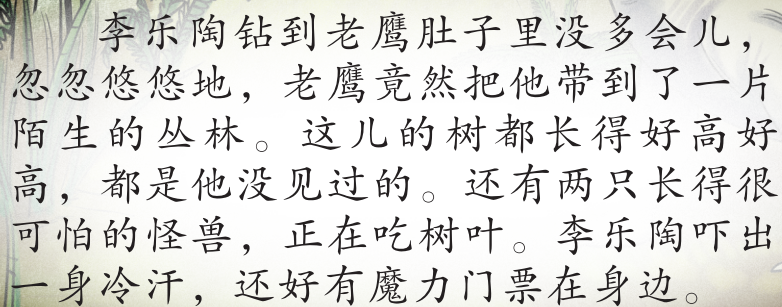 李乐陶钻到老鹰肚子里没多会儿，
忽忽悠悠地，老鹰竟然把他带到了一片
陌生的丛林。这儿的树都长得好高好
高，都是他没见过的。还有两只长得很
可怕的怪兽，正在吃树叶。李乐陶吓出
一身冷汗，还好有魔力门票在身边。